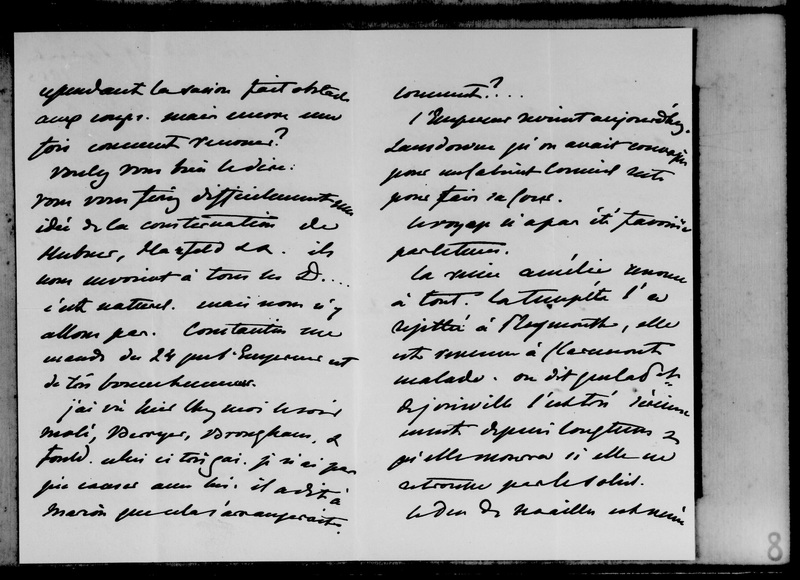 cependant la saison fait obstacle
aux coups. mais encore une
fois comment renouer?
voulez vous bien le dire:
vous vous ferez difficilement une
idée de la consternation de
Hubner, Hatzfeld &&. ils
nous envoient à tous les D....
c'est naturel. mais nous n'y
allons pas. Constantin me
mande du 24 que l'Empereur est
de très bonne humeur.
j'ai vu hier chez moi le soir
Molé, Berryer, Brougham, &
Fould. celui ci très gai. je n'ai pas
pu causer avec lui. il a dit à
Marion que cela s'arrangerait.
comment?...
l'Empereur revient aujourd'hui.
Lansdowne qu'on avait convoqué
pour un Cabinet Council reste
pour faire sa cour.
le voyage n'a pas été favorisé
par le tems.
la reine amélie renonce
à tout. la tempête l'a
rejettée à Weymouth, elle
est revenue à Claremont
malade. on dit que la Psse
de joinville l'est très sérieuse
ment depuis longtems &
qu'elle mourra si elle ne
retrouve pas le soleil.
le duc de Noailles est venu
8